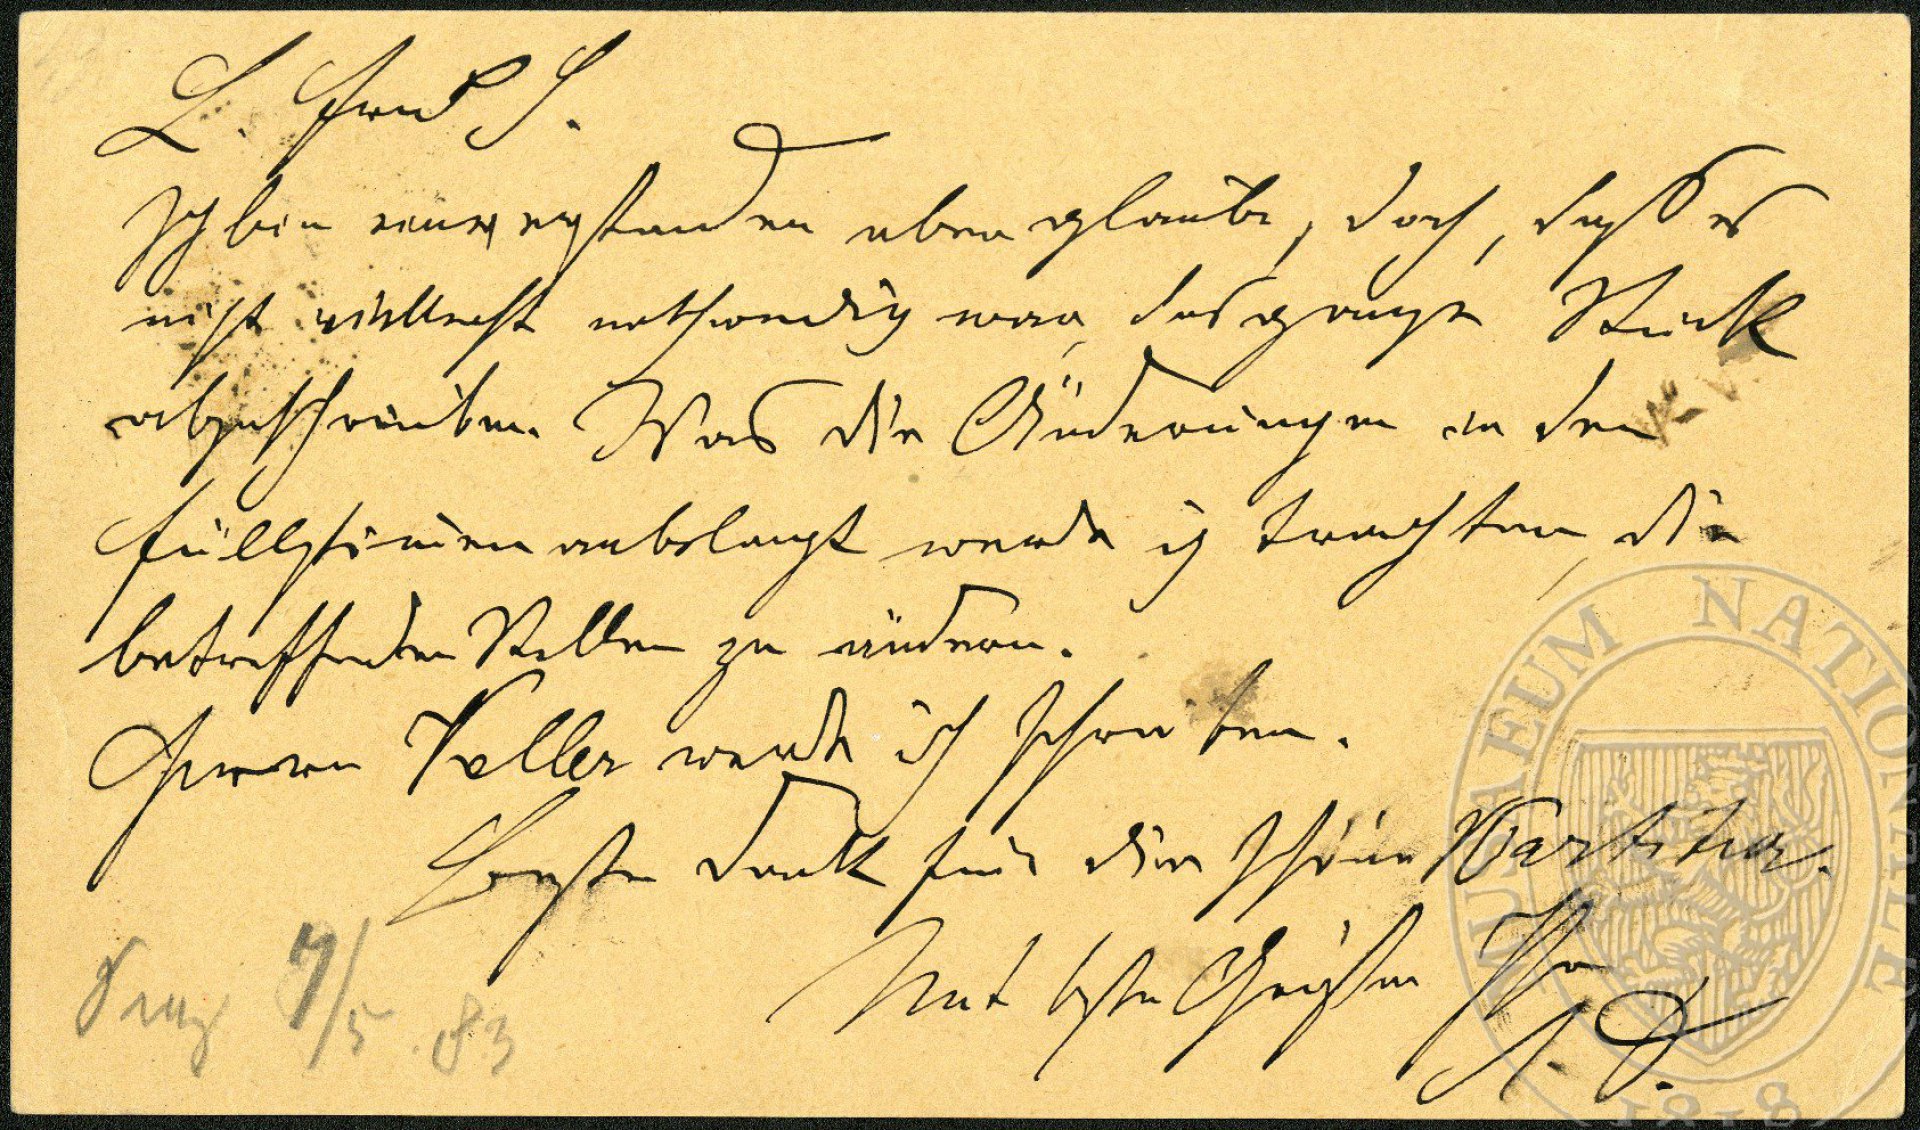 L. Freund S.
Ich bin einverstanden aber glaube, doch, dass es
nicht vielleicht nothwendig war, das ganze Stück
abzuschreiben. Was die Änderungen in den
Füllstimmen anbelangt werde ich trachten, die
betreffenden Stellen zu ändern.
Herrn Keller werde ich schreiben.
Besten Dank für die schöne Partitur.
Mit besten Grüßen Ihr
A. D.
Prag 7/5 .83
MUSAEUM NATIONALE
1818